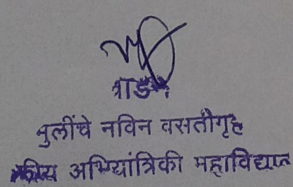 मुलींचे नविन वसतीगृह
अभियांत्रिकी महाविद्यालय